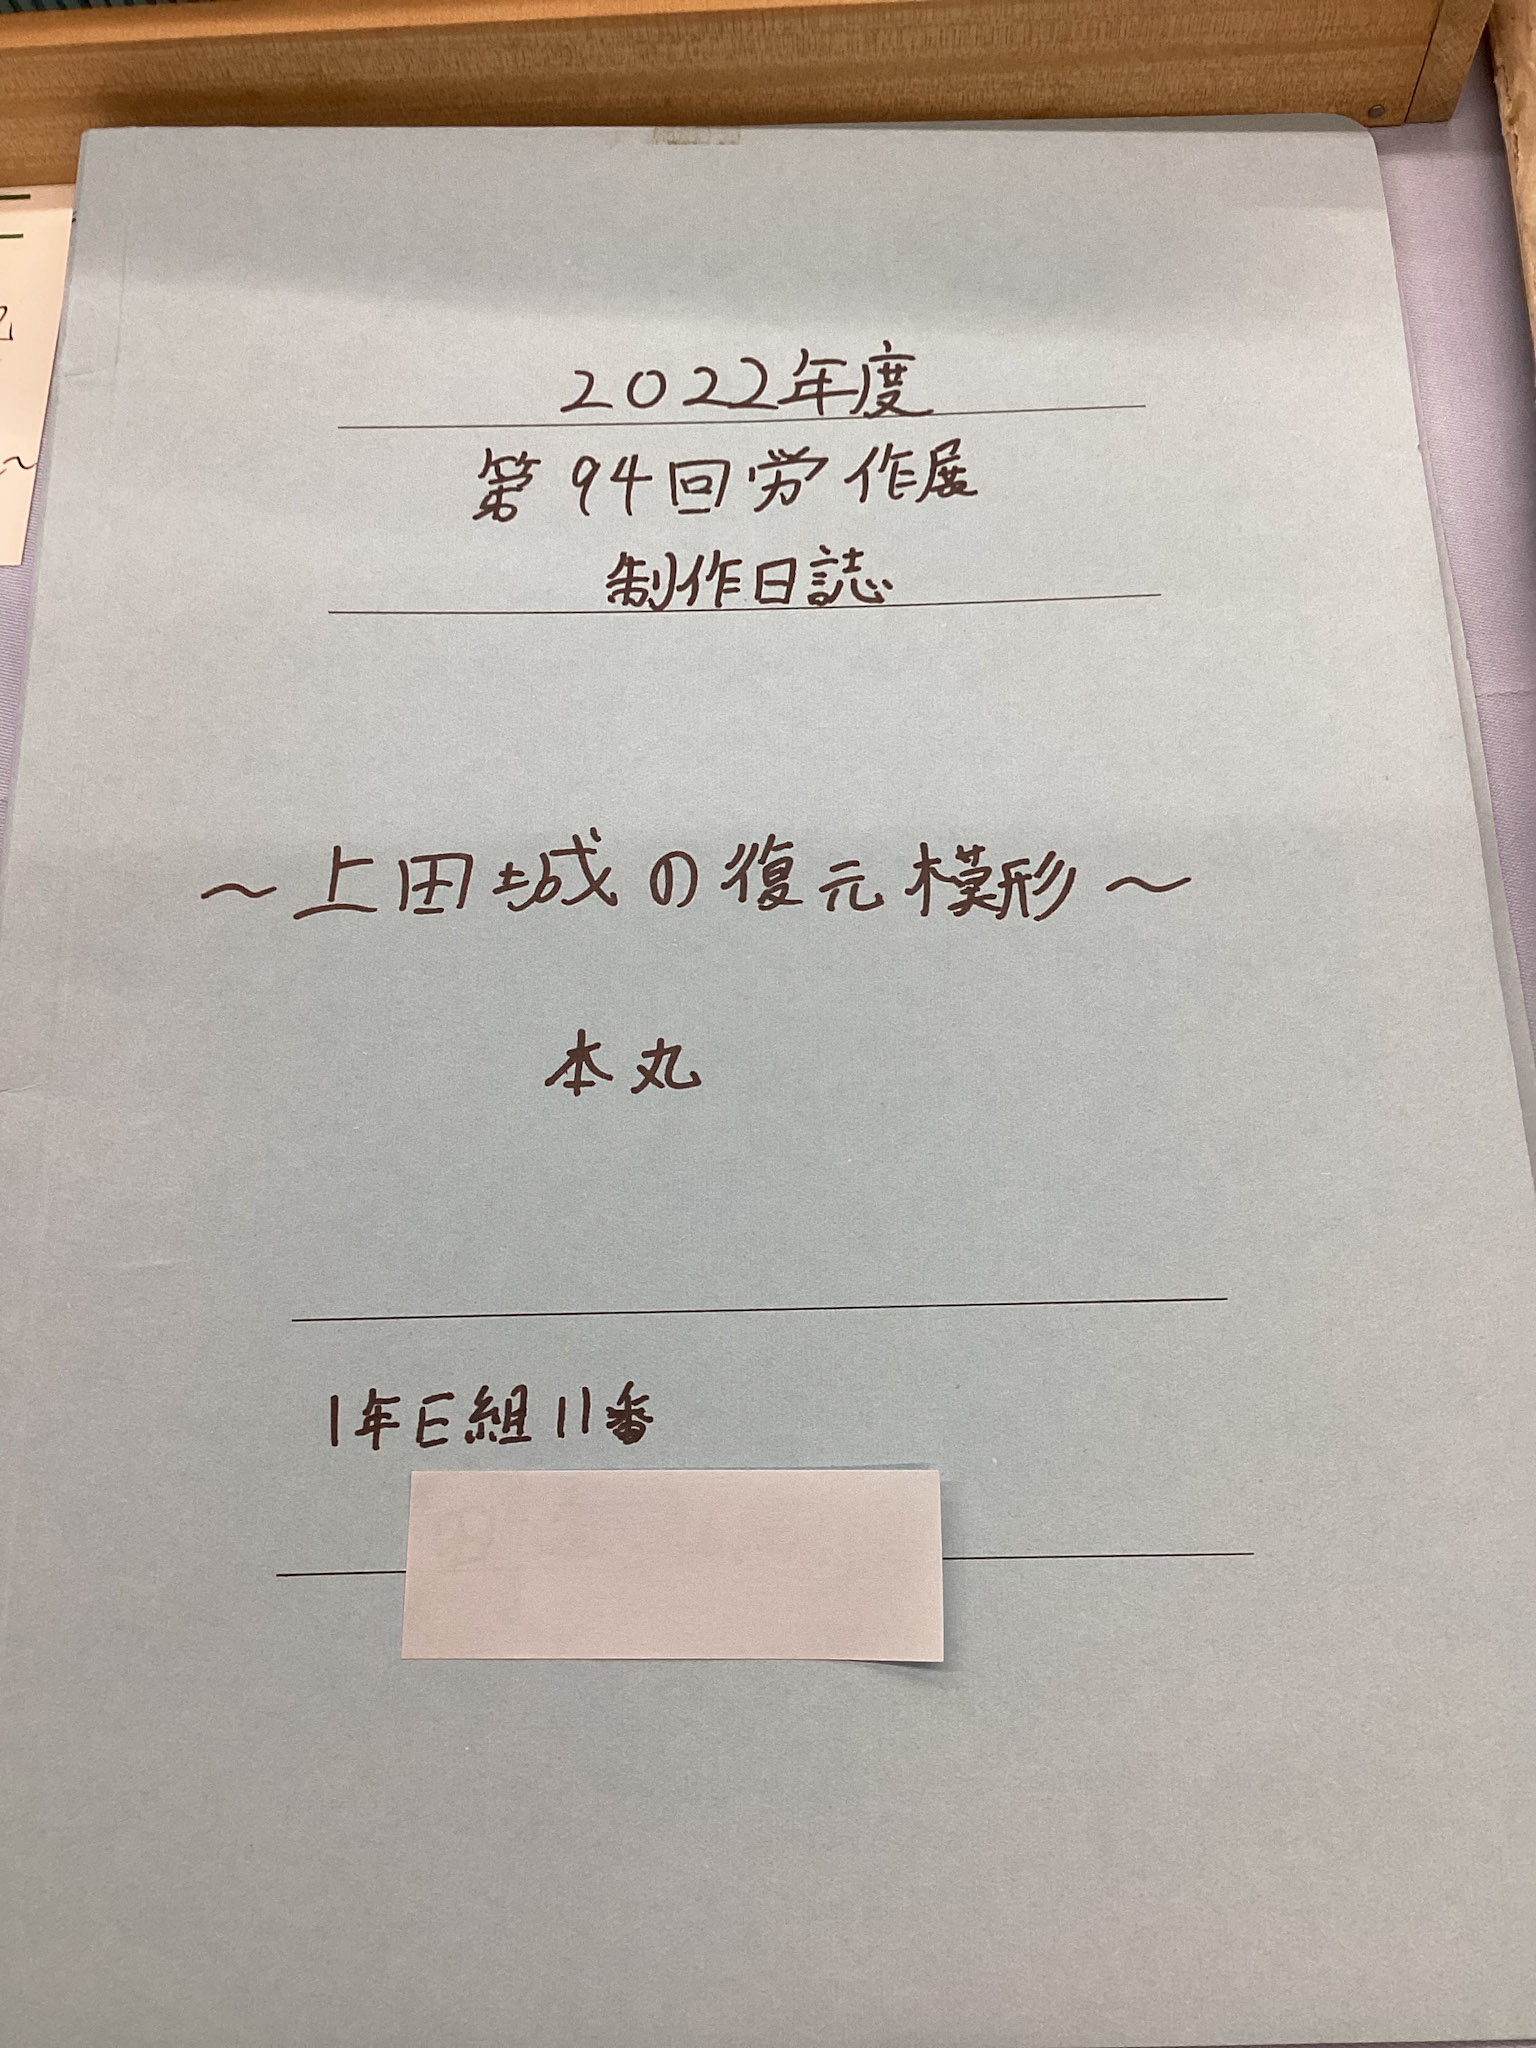 2022年度
第94回労作展
制作日誌
～上田城の復元模形～
本丸
1年E組11番